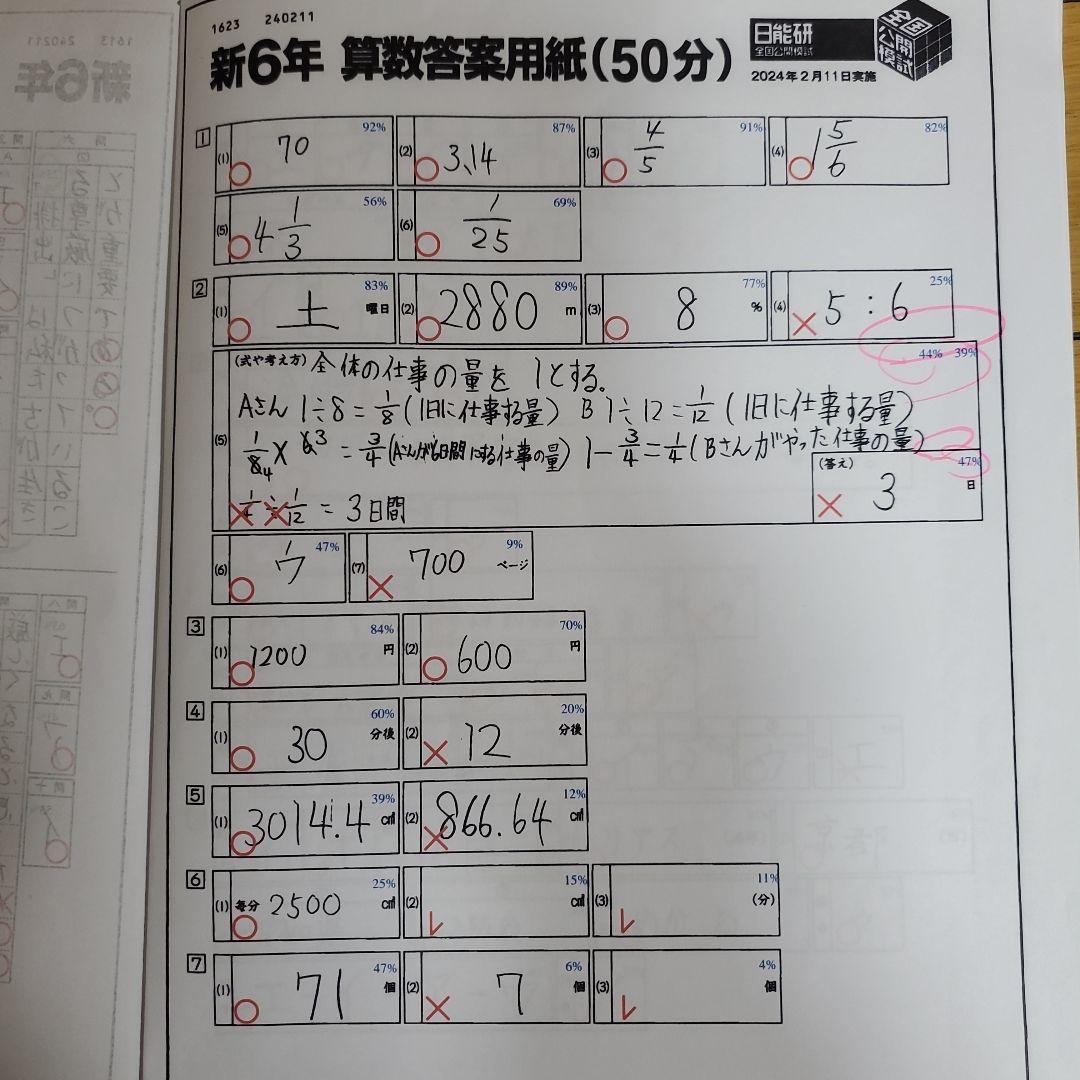 1623 240211
新6年 算数答案用紙(50分)
日能研
全国公開模試
2024年2月11日実施
全国
公開
模試
1
(1) 70 92%
(2) 3.14 87%
(3) 4/5 91%
(4) 1 5/6 82%
(5) 4 1/3 56%
(6) 1/25 69%
2
(1) 土 曜日 83%
(2) 2880 m 89%
(3) 8 % 77%
(4) 5:6 25%
(5) (式や考え方) 全体の仕事の量を1とする。 44% 39%
Aさん 1÷8=1/8(1日に仕事する量) B 1÷12=1/12(1日に仕事する量)
1/8 4 × 6 3 = 3/4(Aさんが6日間にする仕事の量) 1-3/4=1/4(Bさんがやった仕事の量)
1/4÷1/12=3日間
(答え) 3 日 47%
(6) ウ 47%
(7) 700 ページ 9%
3
(1) 1200 円 84%
(2) 600 円 70%
4
(1) 30 分後 60%
(2) 12 分後 20%
5
(1) 3014.4 39%
(2) 866.64 12%
6
(1) 毎分 2500 25%
(2) 15%
(3) (分) 11%
7
(1) 71 個 47%
(2) 7 個 6%
(3) 個 4%